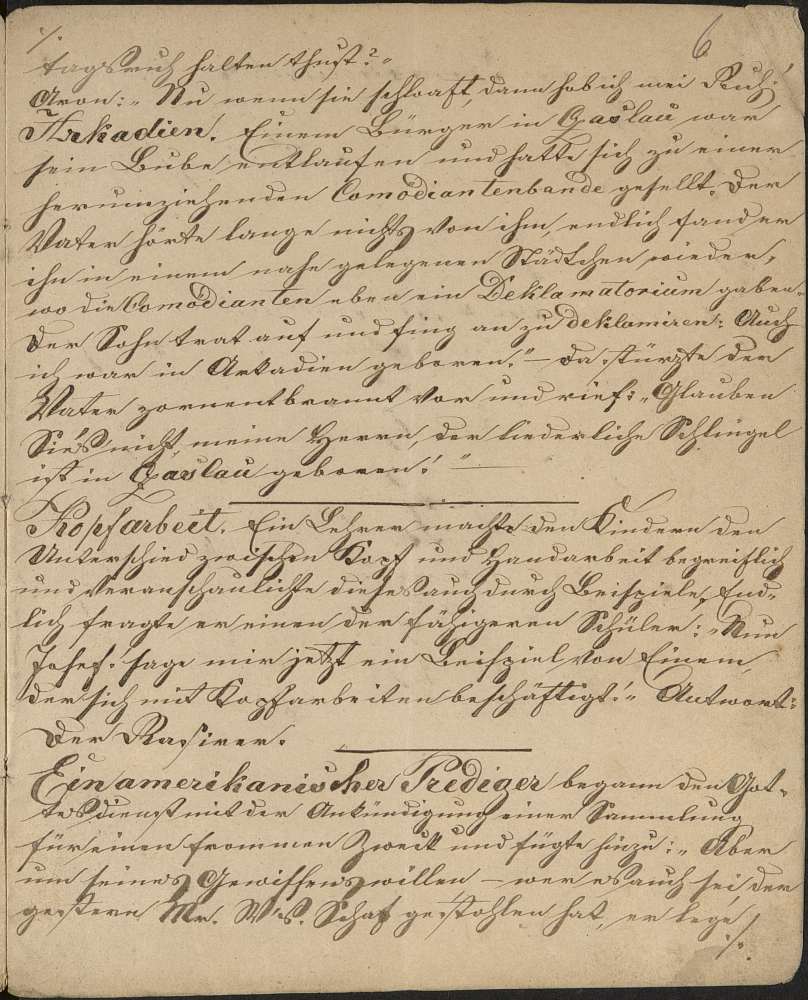 6
·/.
tagsruh halten thust?"
Aron: „Nu wenn sie schlaaft, dann hob ich mei Ruh!"
Arkadien. Einem Bürger in Zaslau war
sein Bube entlaufen und hatte sich zu einer
herumziehenden Comödiantenbande gesellt. Der
Vater hörte lange nichts von ihm, endlich fand er
ihn in einem nahe gelegenen Städtchen wieder,
wo die Comödianten eben ein Deklamatorium gaben.
Der Sohn trat auf und fing an zu deklamiren: „Auch
ich war in Arkadien geboren." — Da stürzte der
Vater zornentbrannt vor und rief: „Glauben
Sie's nicht, meine Herrn, der liederliche Schlingel
ist in Zaslau geboren!" —
Kopfarbeit. Ein Lehrer machte den Kindern den
Unterschied zwischen Kopf und Handarbeit begreiflich
und veranschaulichte dieses auch durch Beispiele. End-
lich fragte er einen der fähigeren Schüler: „Nun
Josef! sage mir jetzt ein Beispiel von Einem,
der sich mit Kopfarbeiten beschäftigt!" Antwort:
Der Rasirer.
Ein amerikanischer Prediger begann den Got-
tesdienst mit der Ankündigung einer Sammlung
für einen frommen Zweck und fügte hinzu: „Aber
um seines Gewissens willen — wer es auch sei, der
gestern Mr. W's. Schaf gestohlen hat, er lege
·/.